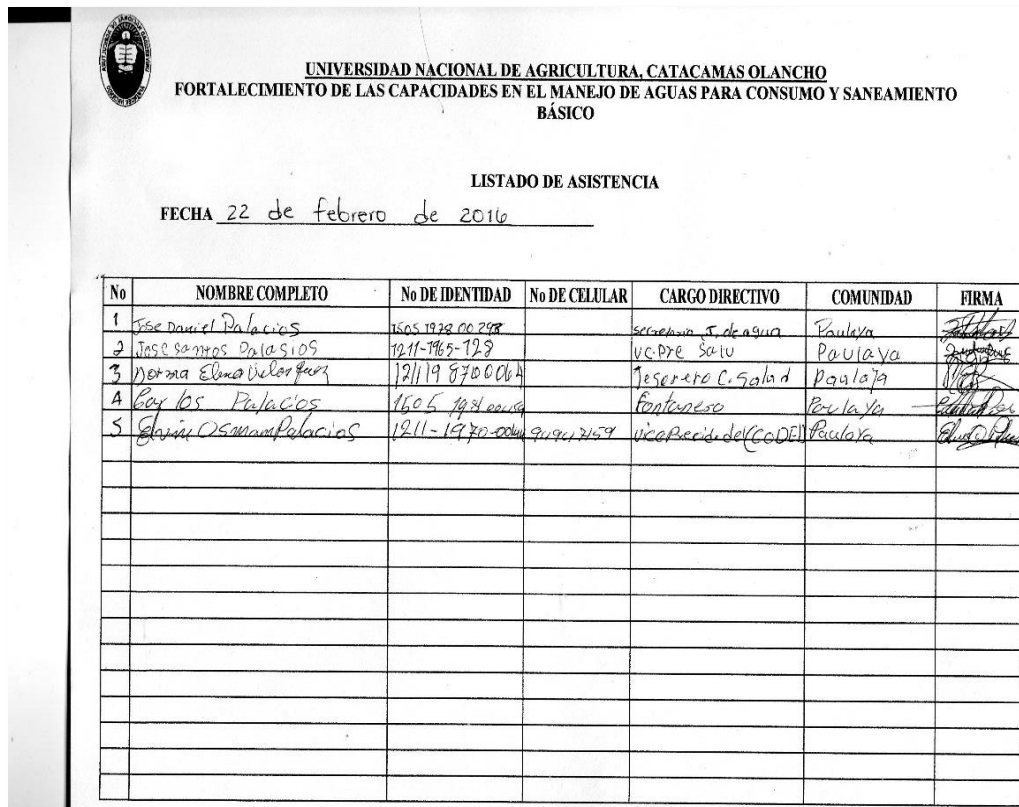 UNIVERSIDAD NACIONAL DE AGRICULTURA, CATACAMAS OLANCHO
FORTALECIMIENTO DE LAS CAPACIDADES EN EL MANEJO DE AGUAS PARA CONSUMO Y SANEAMIENTO
BÁSICO
LISTADO DE ASISTENCIA
FECHA 22 de febrero de 2016
No NOMBRE COMPLETO No DE IDENTIDAD No DE CELULAR CARGO DIRECTIVO COMUNIDAD FIRMA
1 Jose Daniel Palacios 1505 1978 00298 secretario J. de agua Paulaya
2 Jose santos Palasios 1211-1965-128 vc.pre Salu Paulaya
3 Norma Elena 1211 9 8700064 Tesorero C. Salud Paulaya
4 Carlos Palacios 1505 Fontanero Paulaya
5 Elvin Osmam Palacios 1211-1970- Paulaya